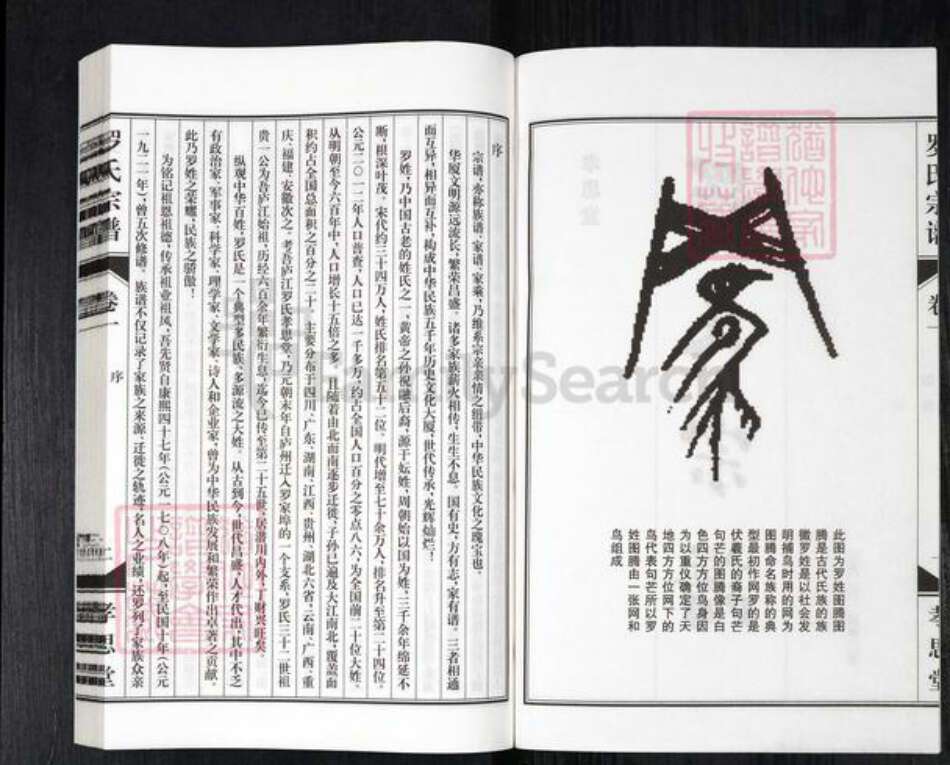 罗氏宗谱
卷一
孝思堂
此图为罗姓图腾图
腾是古代氏族的族
徽罗姓是以社会发
明捕鸟时用的网为
图腾命名族称的典
型最初作网罗的是
伏羲氏的裔子句芒
句芒的图腾像是白
色四方方位鸟身因
为以重仪确定了天
地四方方位网下的
鸟代表句芒所以罗
姓图腾由一张网和
鸟组成
序
宗谱，亦称族谱、家谱、家乘，乃维系宗亲亲情之纽带，中华民族文化之瑰宝也。
华厦文明源远流长，繁荣昌盛。诸多家族薪火相传，生生不息。国有史，方有志，家有谱。三者相通
而互异，相异而互补，构成中华民族五千年历史文化大厦，世代传承，光辉灿烂！
罗姓，乃中国古老的姓氏之一，黄帝之孙祝融后裔，源于妘姓，周朝始以国为姓，三千余年绵延不
断，根深叶茂。宋代约三十四万人，姓氏排名第五十二位。明代增至七十余万人，排名升至第二十四位。
公元二〇一二年人口普查，人口已达一千多万，约占全国人口百分之零点八六，为全国前二十位大姓。
从明朝至今六百年中，人口增长十五倍之多。且随着由北而南逐步迁徙，子孙已遍及大江南北，覆盖面
积约占全国总面积之百分之二十。主要分布于四川、广东、湖南、江西、贵州、湖北六省，云南、广西、重
庆、福建、安徽次之。考吾庐江罗氏孝思堂，乃元朝末年自庐州迁入罗家埠的一个支系，罗氏三十一世祖
贵一公为吾庐江始祖，历经六百余年繁衍生息，迄今已传至第二十五世，居潜川内外，丁财兴旺矣。
纵观中华百姓，罗氏是一个典型多民族、多源流之大姓。从古到今，世代昌盛，人才代出，其中不乏
有政治家、军事家、科学家、理学家、文学家、诗人和企业家，曾为中华民族发展和繁荣作出卓著之贡献。
此乃罗姓之荣曜，民族之骄傲！
为铭记祖恩祖德，传承祖业祖风，吾先贤自康熙四十七年（公元一七〇八年）起，至民国十年（公元
一九二一年），曾五次修谱。族谱不仅记录了家族之来源、迁徙之轨迹、名人之业绩，还罗列了家族众亲
罗氏宗谱
卷一
序
一
孝思堂
FamilySearch